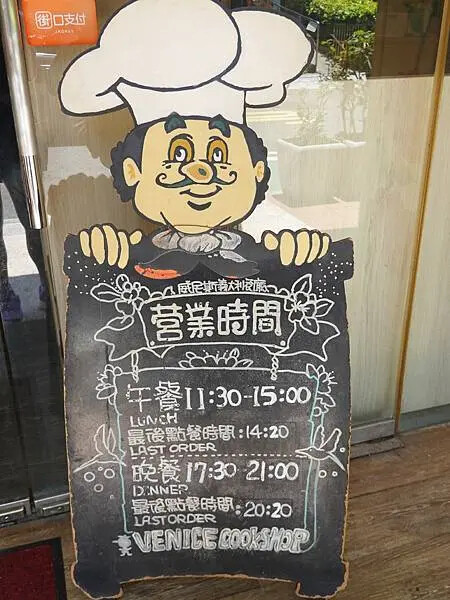 街口支付
JKOPAY
威尼斯義大利餐廳
營業時間
午餐 11:30-15:00
LUNCH
最後點餐時間:14:20
LAST ORDER
晚餐 17:30-21:00
DINNER
最後點餐時間:20:20
LAST ORDER
VENICE COOKSHOP